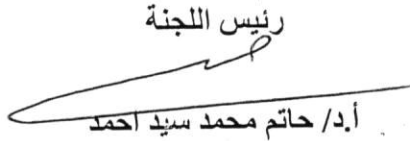 رئيس اللجنة
أ.د/ حاتم محمد سيد احمد